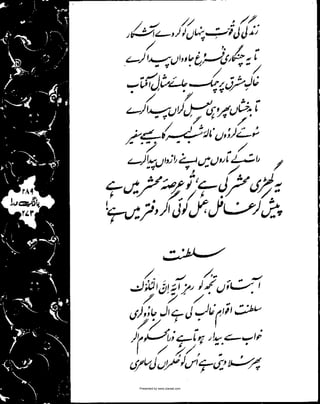 زندگی کی قوّتِ پنہاں کو کر دے آشکار
تا یہ چنگاری فروغِ جاوداں پیدا کرے
خاکِ مشرق پر چمک جائے مثالِ آفتاب
تا بدخشاں پھر وہی لعلِ گراں پیدا کرے
سوئے گردوں نالۂ شب گیر کا بھیجے سفیر
رات کے تاروں میں اپنے رازداں پیدا کرے
یہ گھڑی محشر کی ہے، تُو عرصۂ محشر میں ہے
پیش کر غافل، عمل کوئی اگر دفتر میں ہے!
سلطنت
آ بتاؤں تجھ کو رمزِ آیۂ اِنَّ الْمُلُوْک
سلطنت اقوامِ غالب کی ہے اک جادوگری
خواب سے بیدار ہوتا ہے ذرا محکوم اگر
پھر سلا دیتی ہے اُس کو حکمراں کی ساحری
۲۸۹
بانگِ درا
۲۷۳
Presented by www.ziaraat.com